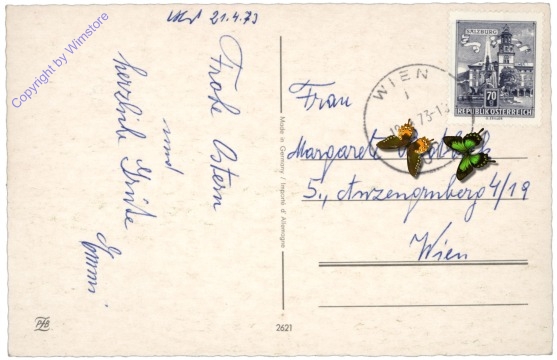 Copyright by Wimstore
21.4.73
Frohe Ostern
und
herzliche Grüße
Emmi
Made in Germany / Importé d'Allemagne
SALZBURG
70
REPUBLIK ÖSTERREICH
WIEN
Frau
Margarete
5., Anzengruberg 4/19
Wien
PHB
2621